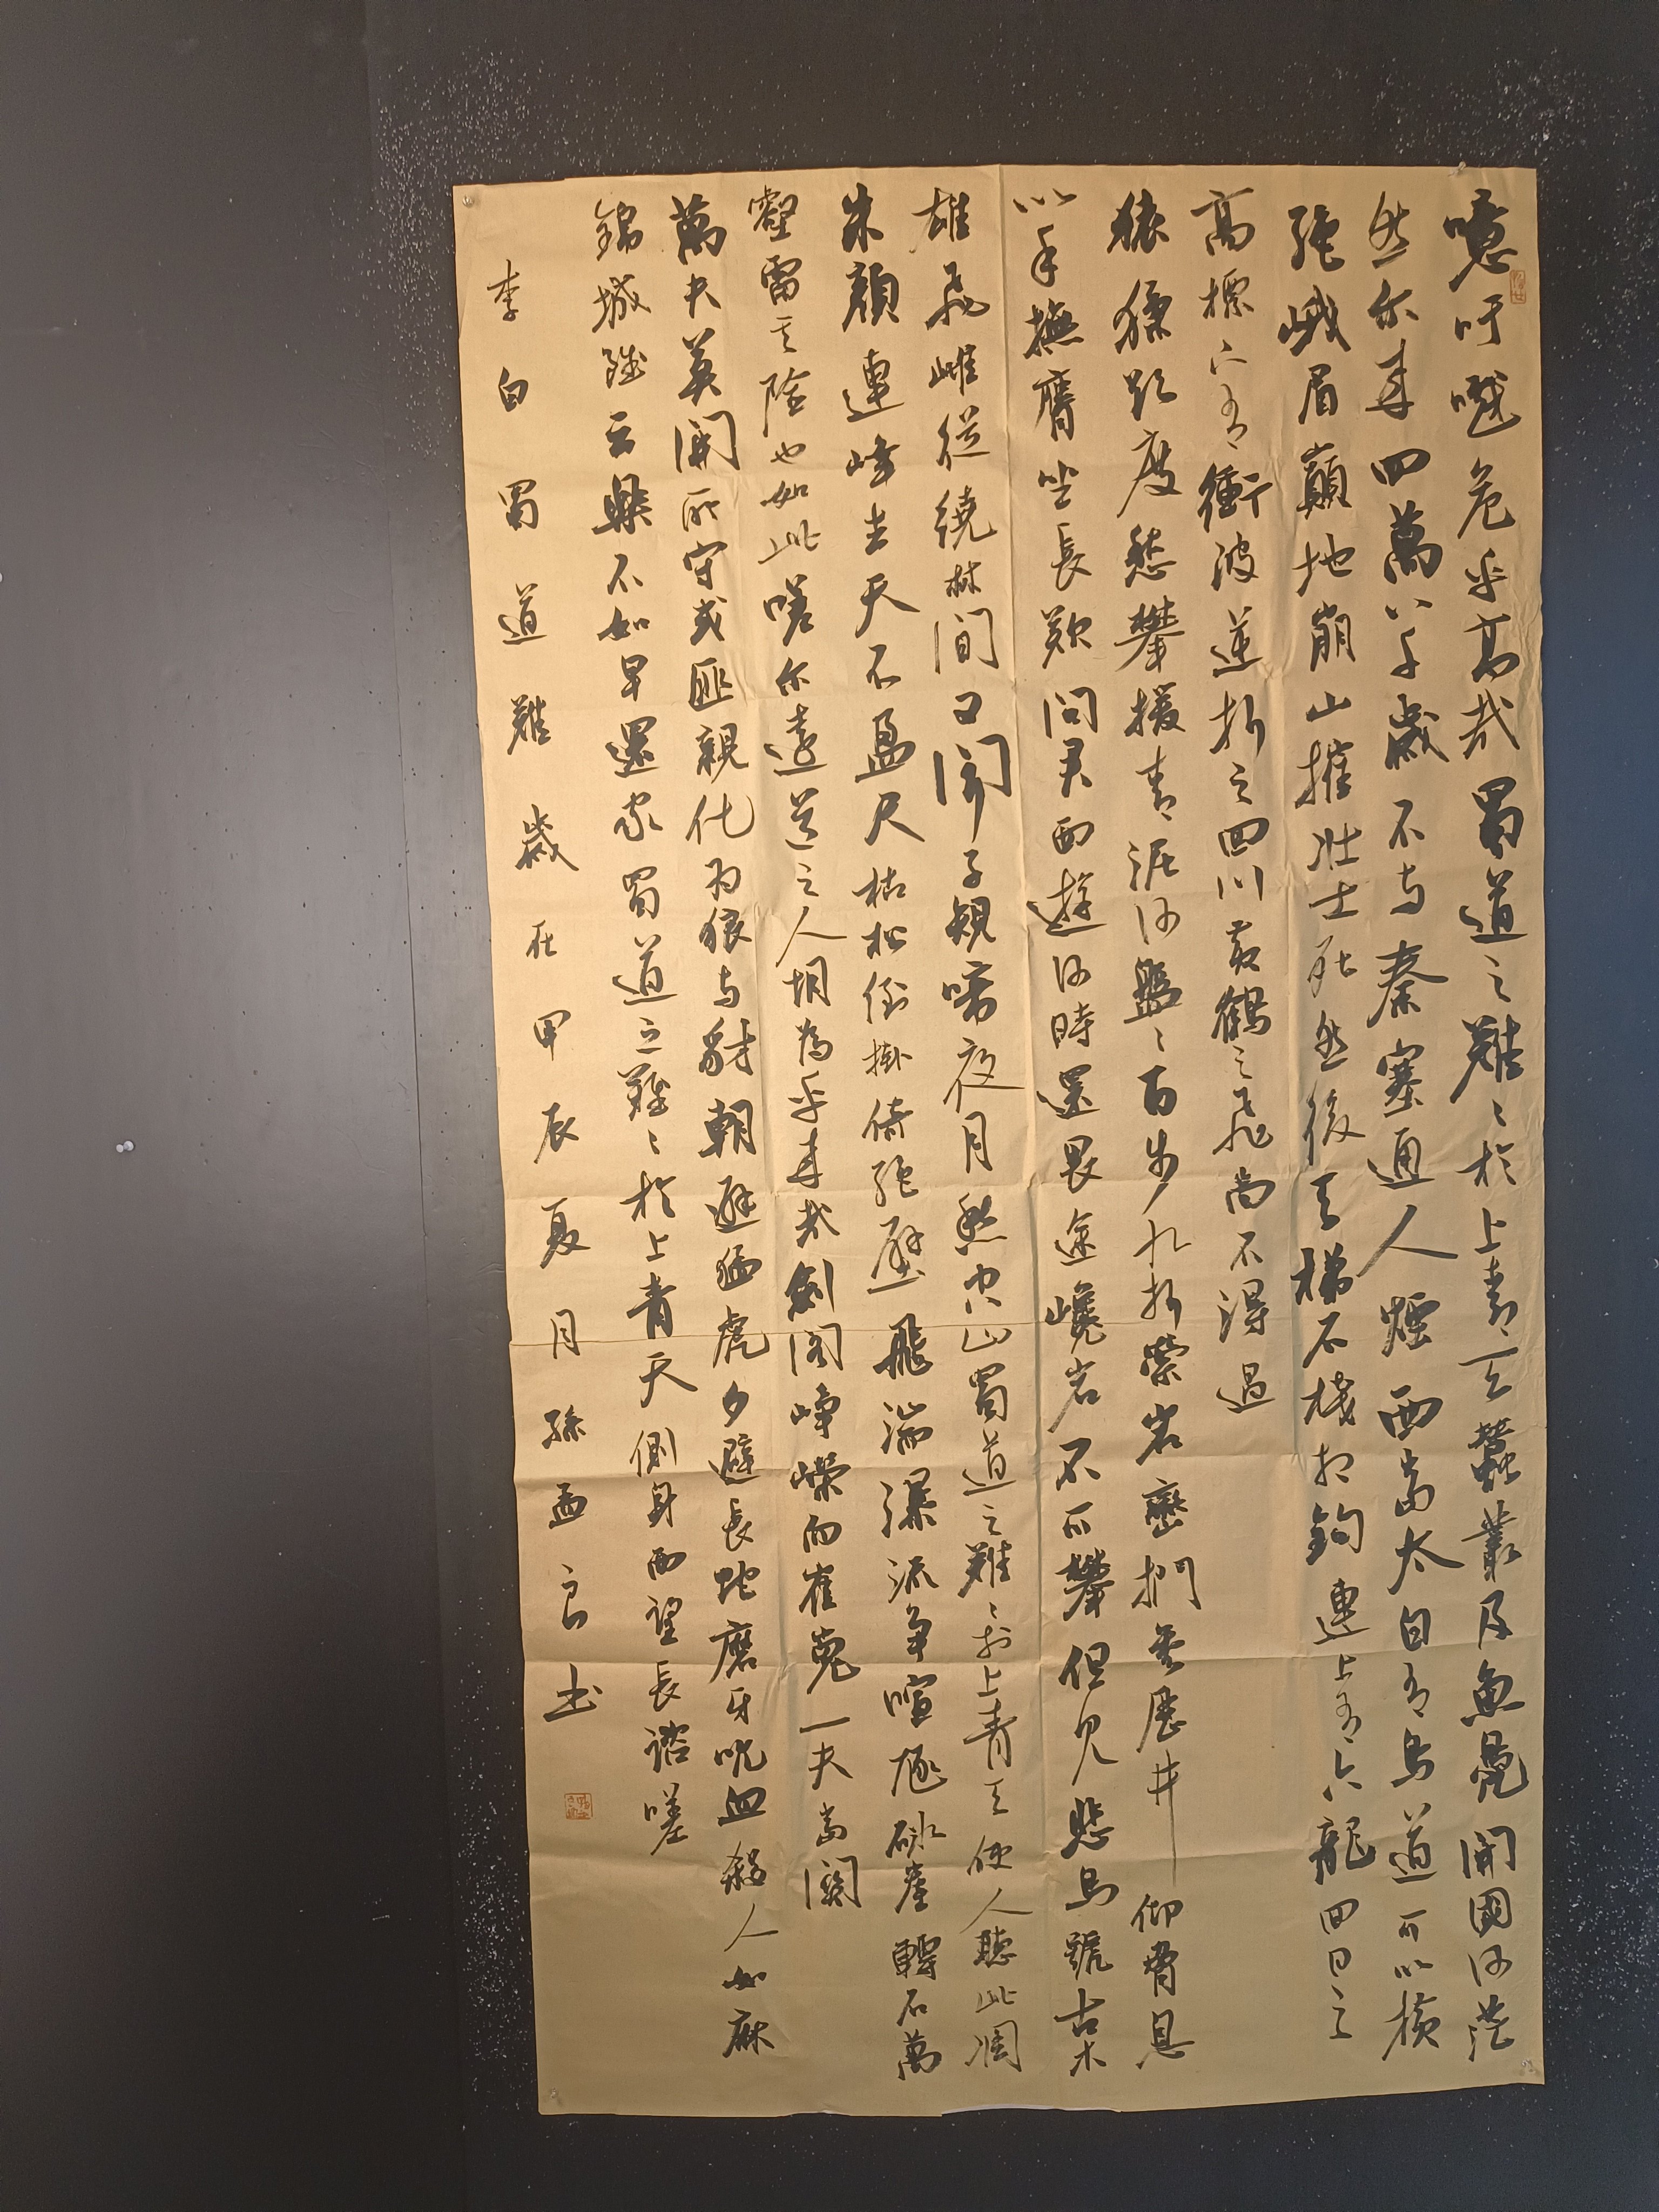 噫吁嚱危乎高哉蜀道之難〻於上青天蠶叢及魚鳧開國何茫
然尔来四萬八千歲不与秦塞通人煙西當太白有鳥道可以橫
絕峨眉巔地崩山摧壯士死然後天梯石棧相鉤連上有六龍回日之
高標下有衝波逆折之回川黃鶴之飛尚不得過
猿猱欲度愁攀援青泥何盤〻百步九折縈岩巒捫參歷井仰脅息
以手撫膺坐長歎問君西遊何時還畏途巉岩不可攀但見悲鳥號古木
雄飛雌從繞林間又聞子規啼夜月愁空山蜀道之難〻於上青天使人聽此凋
朱顏連峰去天不盈尺枯松倒掛倚絕壁飛湍瀑流爭喧豗砯崖轉石萬
壑雷其險也如此嗟尔遠道之人胡為乎来哉劍閣崢嶸而崔嵬一夫當關
萬夫莫開所守或匪親化為狼与豺朝避猛虎夕避長蛇磨牙吮血殺人如麻
錦城雖云樂不如早還家蜀道之難〻於上青天側身西望長諮嗟
李白蜀道難歲在甲辰夏月孫孟良书